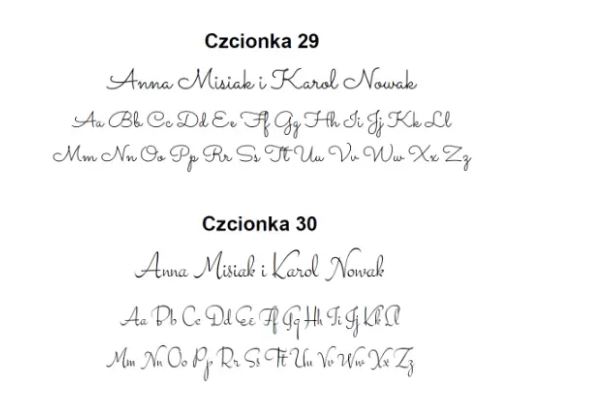 Czcionka 29
Anna Misiak i Karol Nowak
Aa Bb Cc Dd Ee Ff Gg Hh Ii Jj Kk Ll
Mm Nn Oo Pp Rr Ss Tt Uu Vv Ww Xx Zz
Czcionka 30
Anna Misiak i Karol Nowak
Aa Bb Cc Dd Ee Ff Gg Hh Ii Jj Kk Ll
Mm Nn Oo Pp Rr Ss Tt Uu Vv Ww Xx Zz